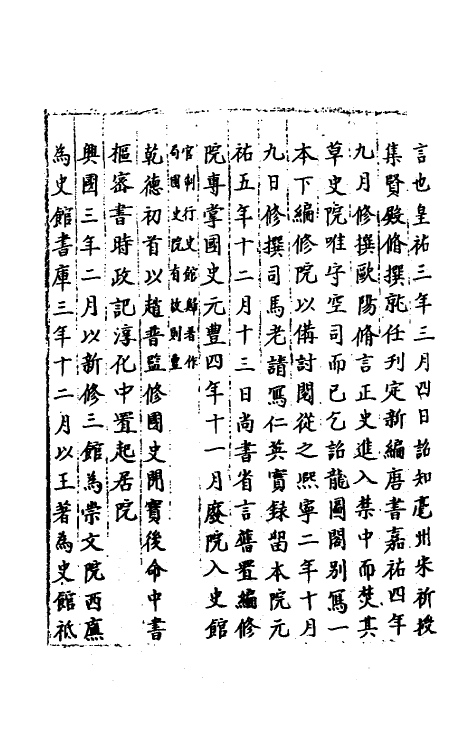 言也皇祐三年三月四日詔知亳州宋祁授
集賢殿脩撰就任刊定新編唐書嘉祐四年
九月修撰歐陽脩言正史進入禁中而焚其
草史院唯守空司而已乞詔龍圖閣别寫一
本下編修院以備討閱從之熈寧二年十月
九日修撰司馬老請寫仁英實録留本院元
祐五年十二月十三日尚書省言舊置編修
院專掌國史元豐四年十一月廢院入史館
官制行史館歸著作
局國史院有故則置
乾德初首以趙普監修國史開寳後命中書
樞密書時政記淳化中置起居院
興國三年二月以新修三館為崇文院西廡
為史館書庫三年十二月以王著為史館祗